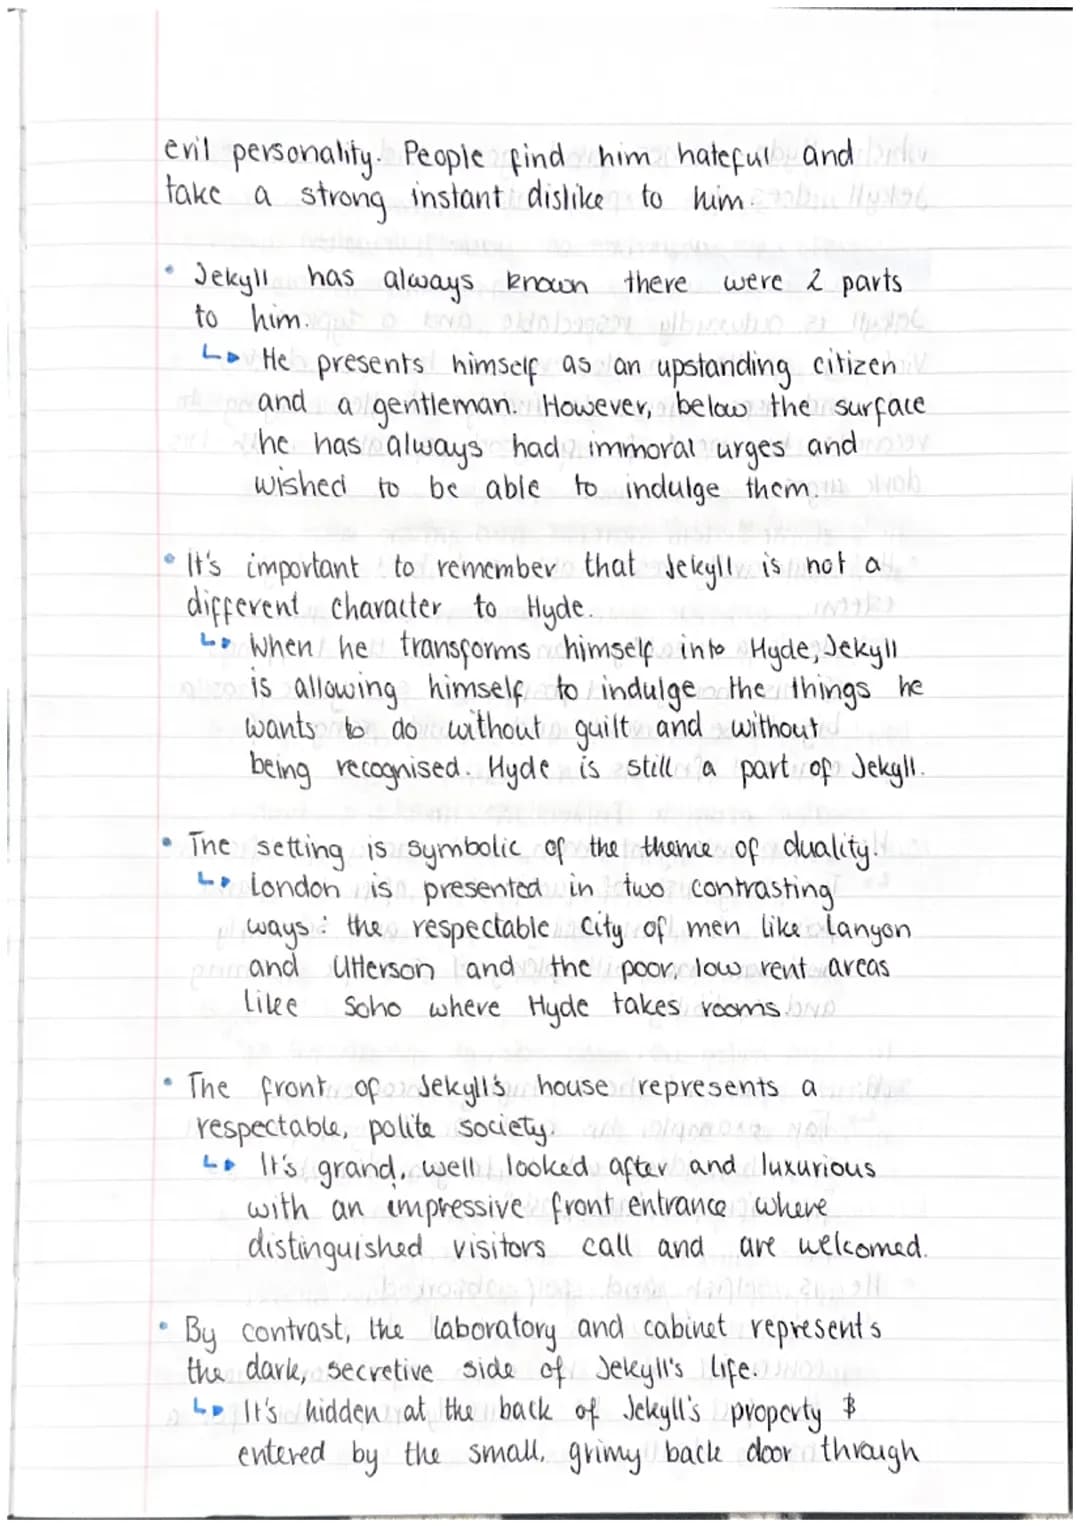 evil personality. People find him hateful and
take a strong instant dislike to him.
• Jekyll has always known there were 2 parts
to him.
↳ He presents himself as an upstanding citizen
and a gentleman. However, below the surface
he has always had immoral urges and
wished to be able to indulge them.
• It's important to remember that Jekyll is not a
different character to Hyde.
↳ When he transforms himself into Hyde, Jekyll
is allowing himself to indulge the things he
wants to do without guilt and without
being recognised. Hyde is still a part of Jekyll.
• The setting is symbolic of the theme of duality.
↳ London is presented in two contrasting
ways: the respectable city of men like Lanyon
and Utterson and the poor, low rent areas
like Soho where Hyde takes rooms.
• The front of Jekyll's house represents a
respectable, polite society.
↳ It's grand, well looked after and luxurious
with an impressive front entrance where
distinguished visitors call and are welcomed.
• By contrast, the laboratory and cabinet represents
the dark, secretive side of Jekyll's life.
↳ It's hidden at the back of Jekyll's property &
entered by the small, grimy back door through